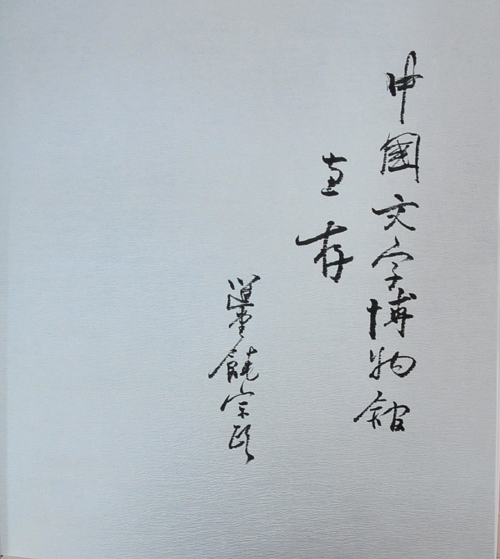 中國文字博物館
惠存
選堂饒宗頤